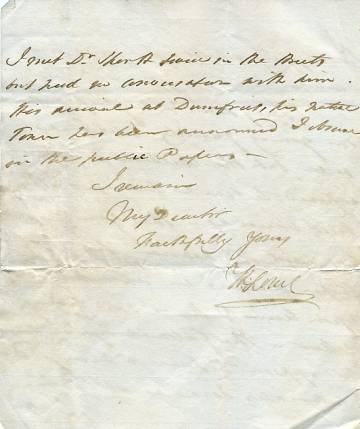 I met Dr. Short twice in the Streets
but had no conversation with him.
His arrival at Dumfries, his native
Town has been announced I observe
in the public Papers—
I remain
My Dear Sir
Faithfully Yours